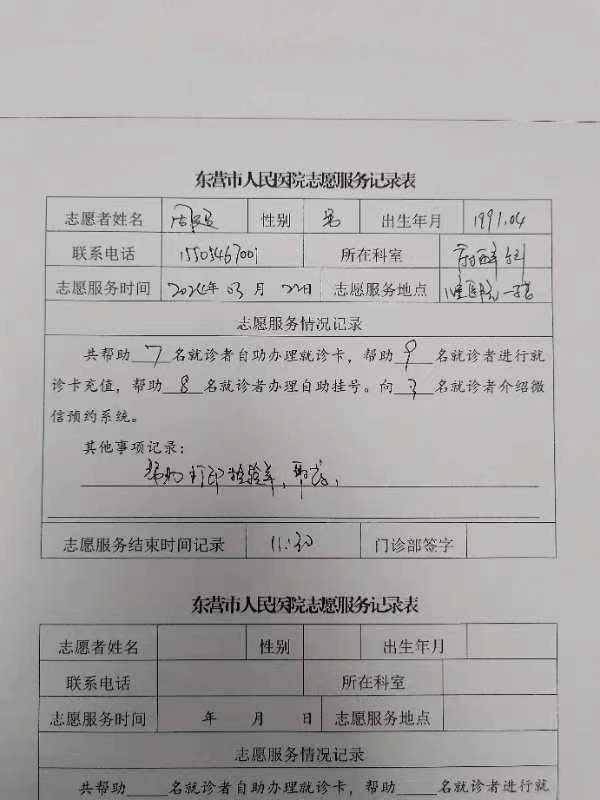 东营市人民医院志愿服务记录表
志愿者姓名 周 性别 男 出生年月 1991.04
联系电话 15505467001 所在科室 科
志愿服务时间 2024年03月22日 志愿服务地点
志愿服务情况记录
共帮助7名就诊者自助办理就诊卡，帮助9名就诊者进行就
诊卡充值，帮助8名就诊者办理自助挂号。向3名就诊者介绍微
信预约系统。
其他事项记录：
帮助打印检验单，取药，
志愿服务结束时间记录 11:30 门诊部签字
东营市人民医院志愿服务记录表
志愿者姓名 性别 出生年月
联系电话 所在科室
志愿服务时间 年 月 日 志愿服务地点
志愿服务情况记录
共帮助____名就诊者自助办理就诊卡，帮助____名就诊者进行就